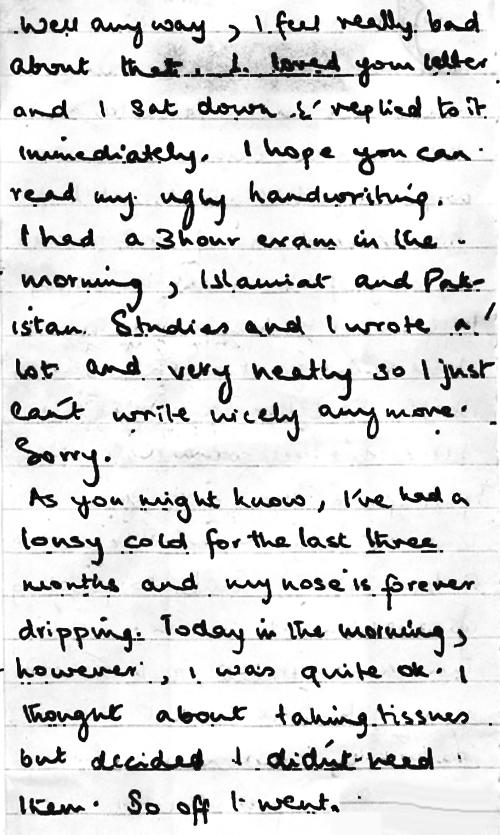 Well any way, I feel really bad
about that. I loved your letter
and I sat down & replied to it
immediately. I hope you can
read my ugly handwriting.
I had a 3 hour exam in the
morning, Islamiat and Pak-
istan Studies and I wrote a
lot and very neatly so I just
can't write nicely any more.
Sorry.
As you might know, I've had a
lousy cold for the last three
months and my nose is forever
dripping. Today in the morning,
however, I was quite ok. I
thought about taking tissues
but decided I didn't need
them. So off I went.